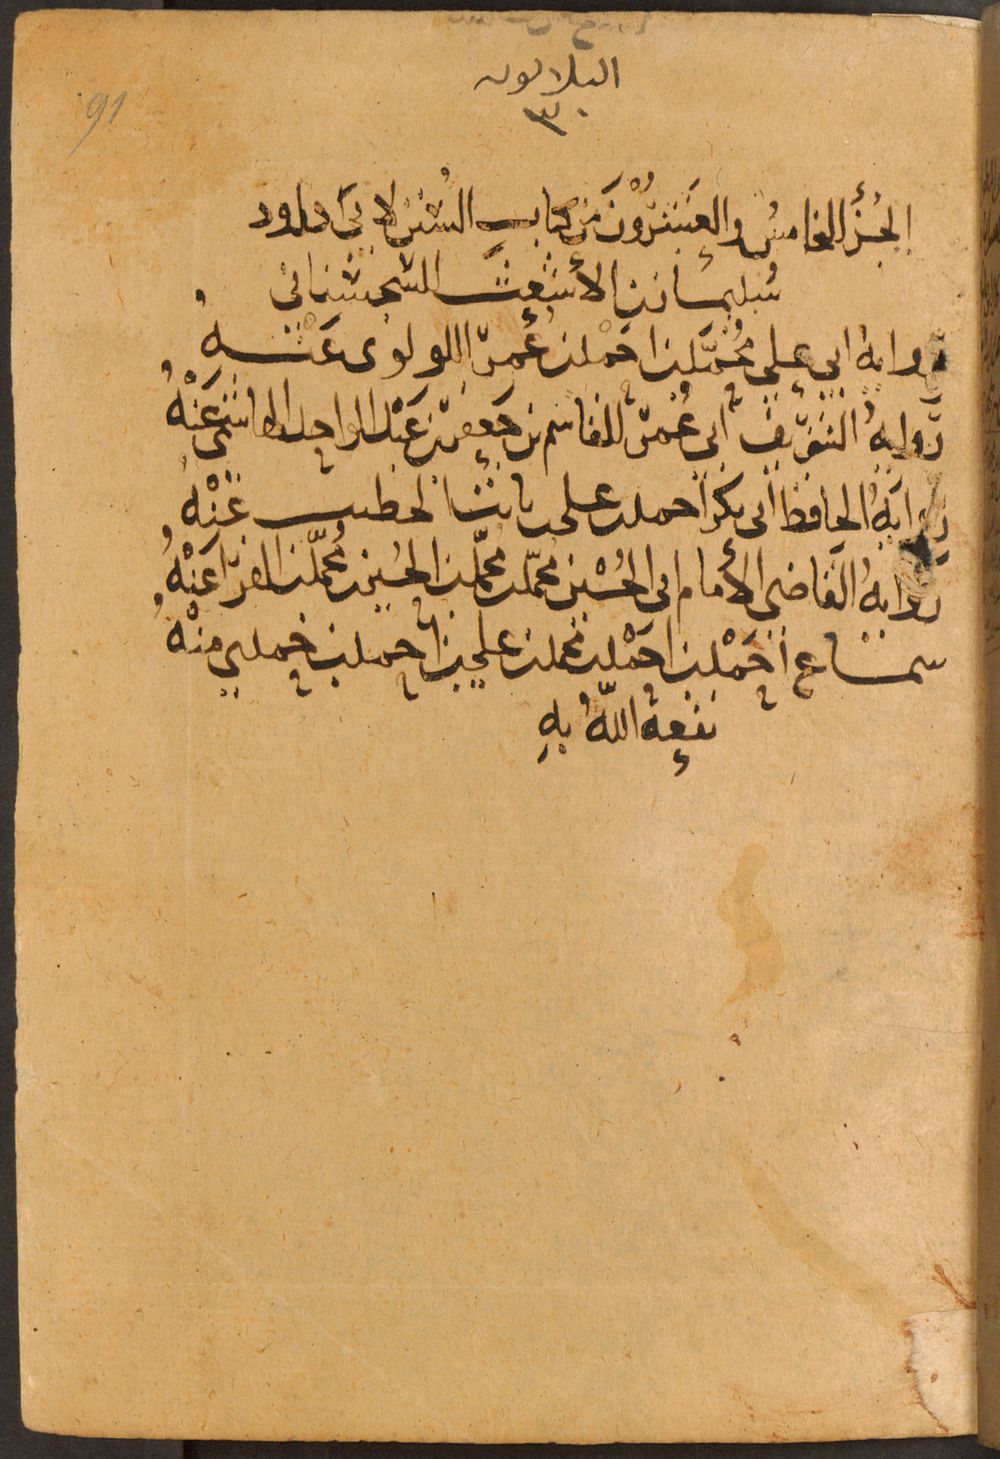 الثلاثون
٣٠
91
الجُزْءُ الخامسُ والعِشْرُونَ مِن كتابِ السُّنَن لأبي داود
سُليمانَ بن الأَشْعَثِ السِّجِسْتاني
رِوايةُ أبي عليٍّ مُحمَّد بن أحْمَد بن عُمَرَ اللؤلؤي عَنْهُ
رِوايةُ الشَّريف أبي عُمَرَ القاسم بن جَعفَر بن عَبْد الواحِد الهاشمي عَنْهُ
روايَةُ الحافظ أبي بكر أحمد بن علي بن ثابت الخطيب عَنْهُ
روايةُ القاضي الأمام أبي الحُسَيْن محمَّد بن محمَّد بن الحُسين بن مُحمَّد بن الفرّاء عَنْهُ
سماع أحْمَد بن أحْمَد بن محمد بن علي بن أحمد بن حمدي مِنْهُ
نفعهُ اللّهُ بِهِ